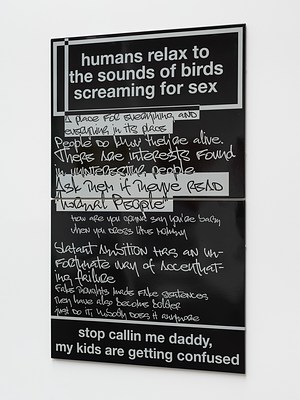 humans relax to
the sounds of birds
screaming for sex
A place for everything and
everything in its place
People do know they're alive.
There are interests found
in uninteresting people
Ask them if they've read
"Normal People"
How are you gonna say you're baby
when you dress like mommy
Blatant ambition has an un-
fortunate way of accentuat-
ing failure
Fake thoughts made fake sentences
They have also become bolder
just do it, nobody does it anymore
stop callin me daddy,
my kids are getting confused